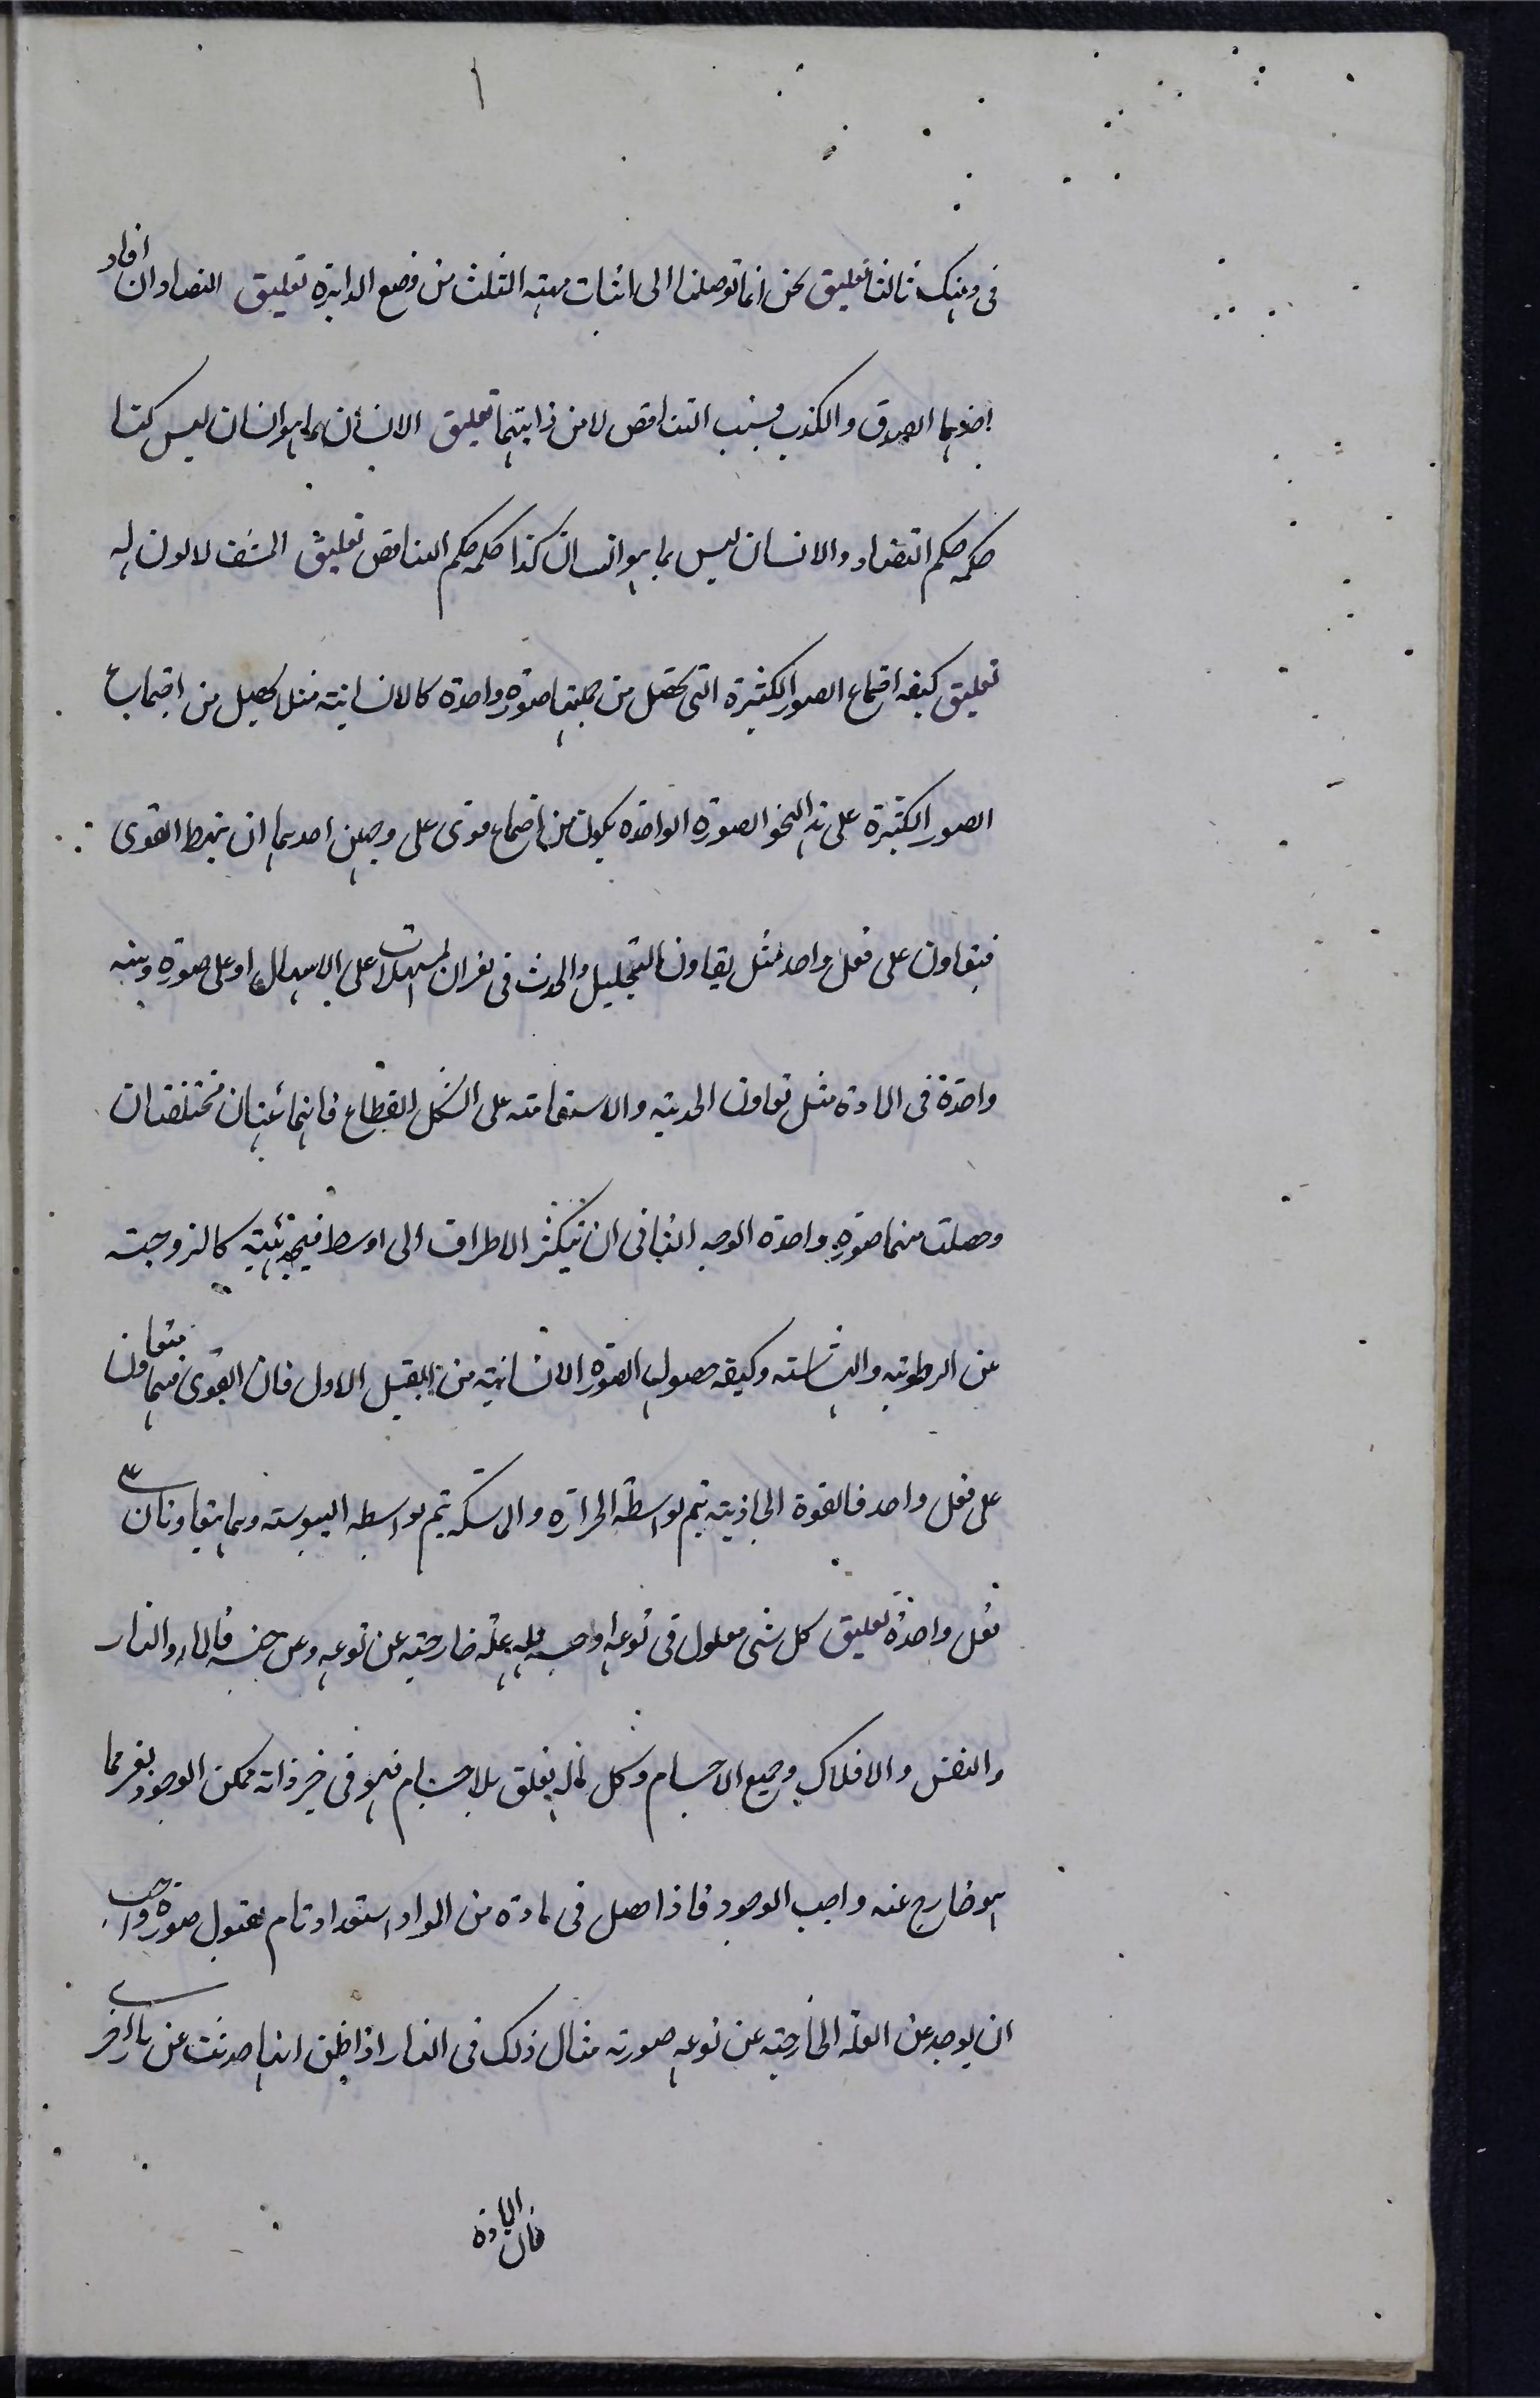 ١
فى ذهنك ثالثا تعليق نحن انما توصلنا الى اثبات مهية المثلث من وضع الدايرة تعليق التضادان افاد
اخذهما الصدق والكذب فبسبب التناقض لا من ذاتيهما تعليق الانسان بما هو انسان ليس كذا
حكمه حكم التضاد والانسان ليس بما هو انسان كذا حكمه حكم التناقض تعليق المشف لا لون له
تعليق كيفه اجتماع الصور الكثيرة التى تحصل من جملتها صورة واحدة كالانسانية مثل يحصل من اجتماع
الصور الكثيرة على هذا النحو الصورة الواحدة يكون من اجتماع قوى على وجهين احدهما ان القوى
فيتعاون على فعل واحد مثل يتعاون التحليل والحدث فى المسهلات على الاسهال او على صورة وهيئة
واحدة فى المادة مثل تعاون الحديدية والاستقامة على الشكل القطاع فانهما مختلفتان
وحصلت منهما صورة واحدة الوجه الثانى ان الاطراف الى اوسط كاللزوجة
عن الرطوبة والهشاشة وكيفه حصول الصورة الانسانية من القبيل الاول فان القوى فيها متعاون
على فعل واحد فالقوة الجاذبة تتم بواسطة الحرارة والماسكة تتم بواسطة اليبوسة وهما يتعاونان على
فعل واحدة تعليق كل شى معلول فى نوعه او جنسه فله علة خارجية عن نوعه وعن جنسه فالماء والنار
والنفس والافلاك وجميع الاجسام وكل ماله تعلق بالاجسام فهو فى حيز ذاته ممكن الوجود بغير مما
هو خارج عنه واجب الوجود فاذا حصل فى مادة من المواد استعداد تام لقبول صورة واجب
ان يوجد عن العلة الخارجية عن نوعه صورته مثال ذلك فى النار اذا ظن انها حدثت عن نار اخرى
فان المادة